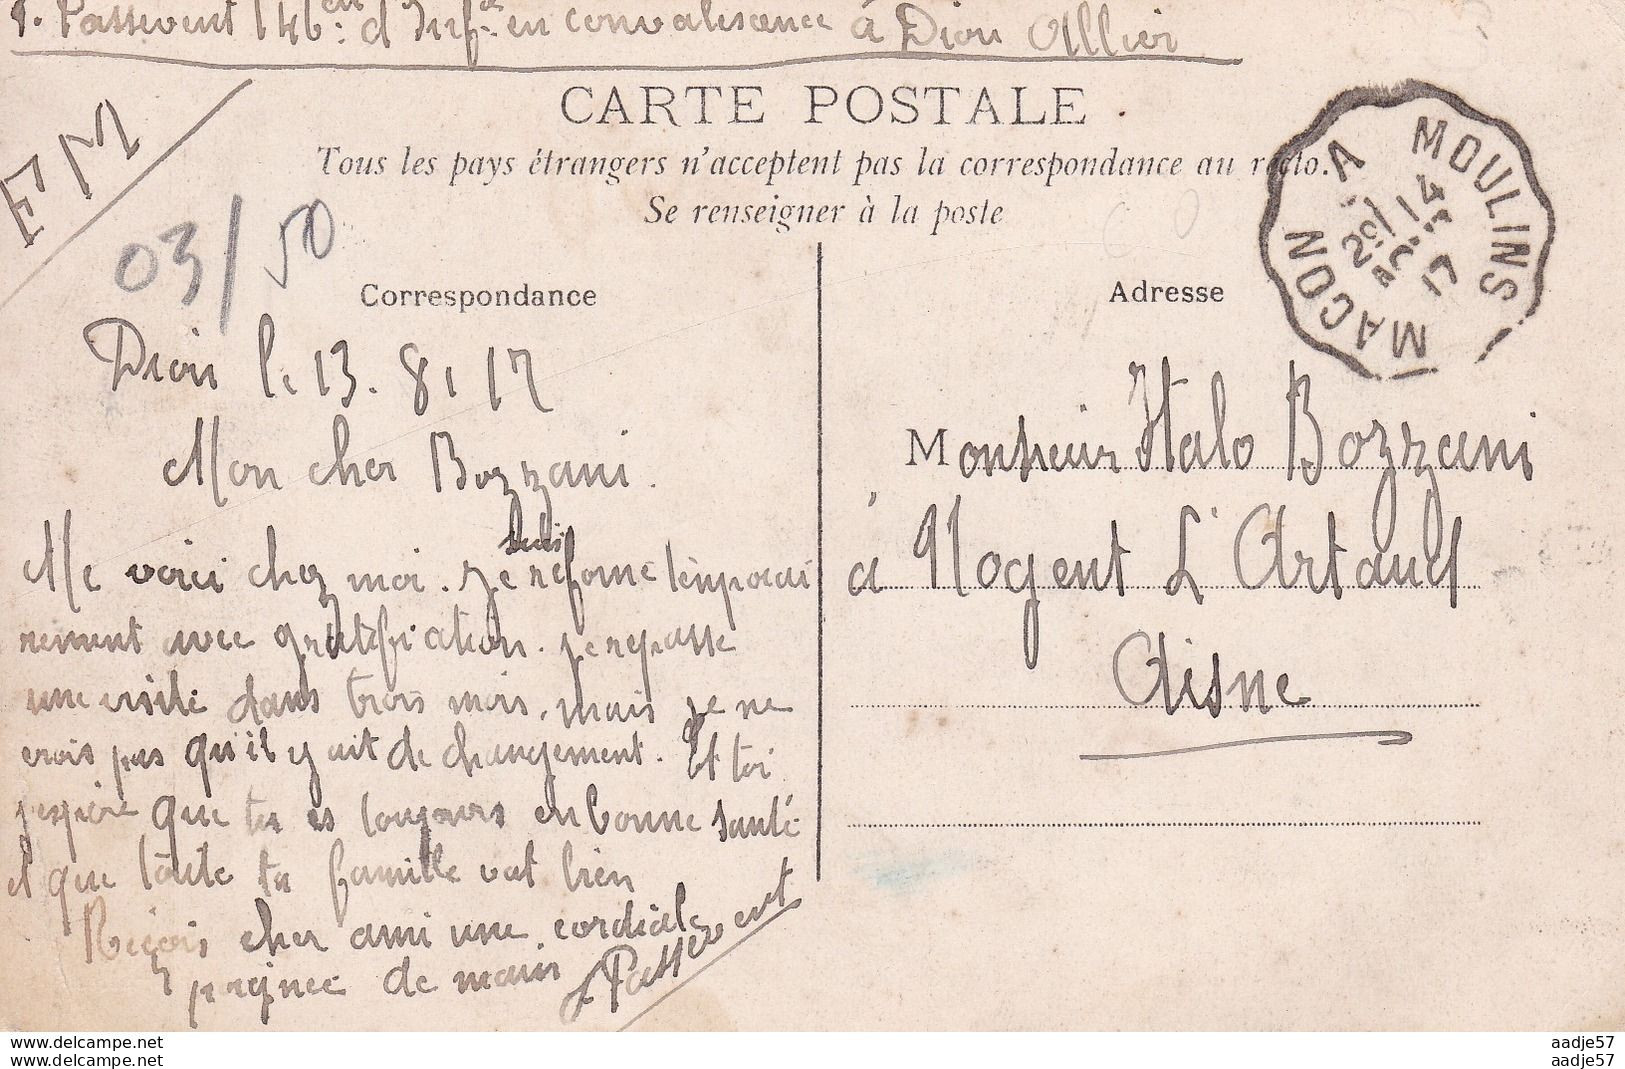 P. Passevent 146e rt d'Infie en convalescence à Diou Allier
FM
03/50
CARTE POSTALE
Tous les pays étrangers n'acceptent pas la correspondance au recto.
Se renseigner à la poste
MACON A MOULINS
14
17
Correspondance
Diou le 13. 8. 17
Mon cher Bozzani.
suis
Me voici chez moi. Je reforme temporai
rement avec gratification. je repasse
une visite dans trois mois, mais je ne
crois pas qu'il y ait de changement. Et toi
j'espère que tu es toujours en bonne santé
et que toute ta famille vat bien
Reçois cher ami une cordiale
poignee de main
Passevent
Adresse
Monsieur Italo Bozzani
à Nogent L'Artaud
Aisne
www.delcampe.net
www.delcampe.net
aadje57
aadje57